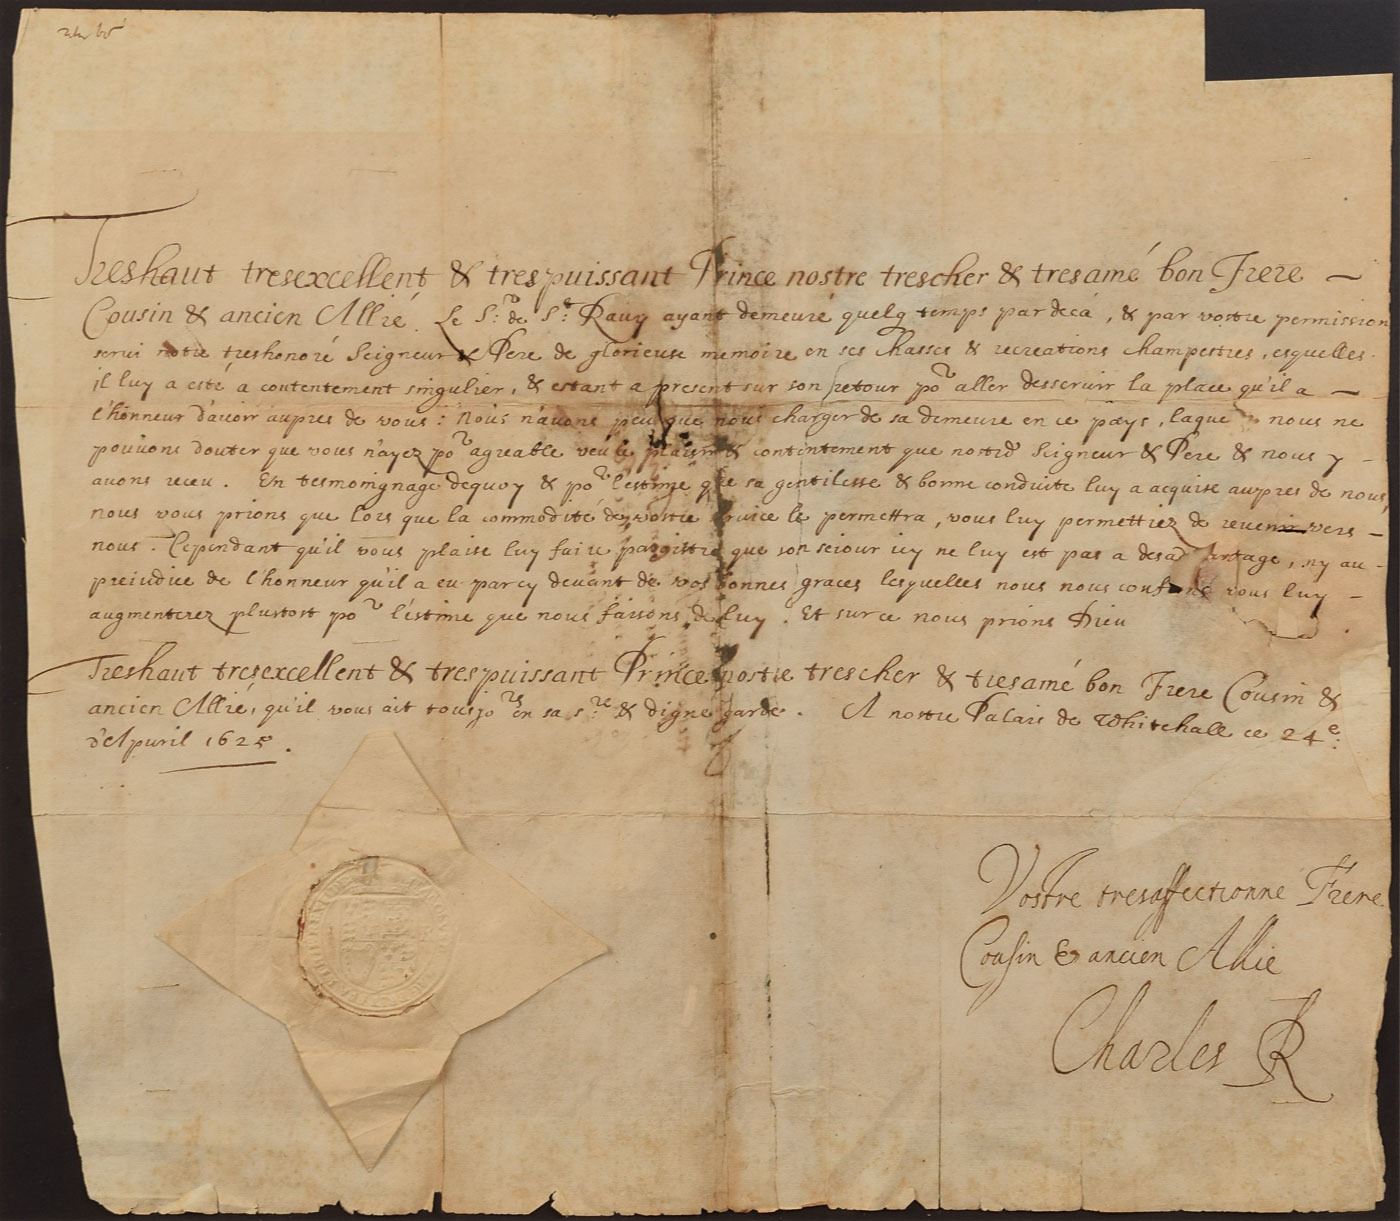 Treshaut tresexcellent & trespuissant Prince nostre trescher & tresamé bon Frere
Cousin & ancien Allié. Le Sr. de St. Ravy ayant demeuré quelq temps par deça, & par vostre permission
servi notre treshonoré Seigneur & Pere de glorieuse memoire en ses chasses & recreations champestres, esquelles
il luy a esté a contentement singulier, & estant a present sur son retour por aller desservir la place qu'il a
l'honneur d'avoir aupres de vous: Nous n'avons peu que nous charger de sa demeure en ce pays, laque nous ne
pouvons douter que vous n'ayez por agreable veu le plaisir & contentement que nostrd Seigneur & Pere & nous y
avons receu. En tesmoingnage dequoy & por l'estime que sa gentilesse & bonne conduite luy a acquise aupres de nous,
nous vous prions que lors que la commodité de vostre service le permettra, vous luy permettiez de revenir vers
nous. Cependant qu'il vous plaise luy faire paroistre que son sejour icy ne luy est pas a desadvantage, ny au
prejudice de l'honneur qu'il a eu parcy devant de vos bonnes graces lesquelles nous nous confions vous luy
augmenterez plustost por l'estime que nous faisons de luy. Et sur ce nous prions Dieu
Treshaut tresexcellent & trespuissant Prince nostre trescher & tresamé bon Frere Cousin &
ancien Allié, qu'il vous ait tousjors en sa Ste & digne garde. A nostre Palais de Whitehall ce 24e.
d'Apvril 1625.
Vostre tresaffectionné Frere
Cousin & ancien Allie
Charles R